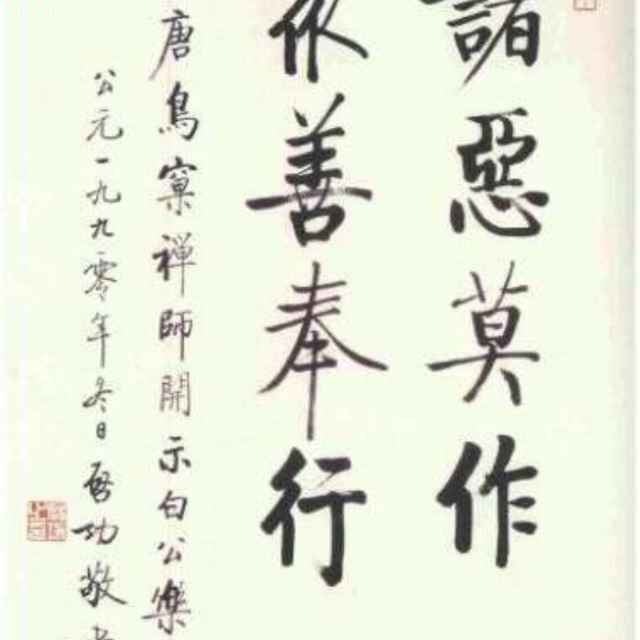 諸惡莫作
善奉行
唐鳥窠禅師開示白公樂
公元一九九零年冬日啓功敬